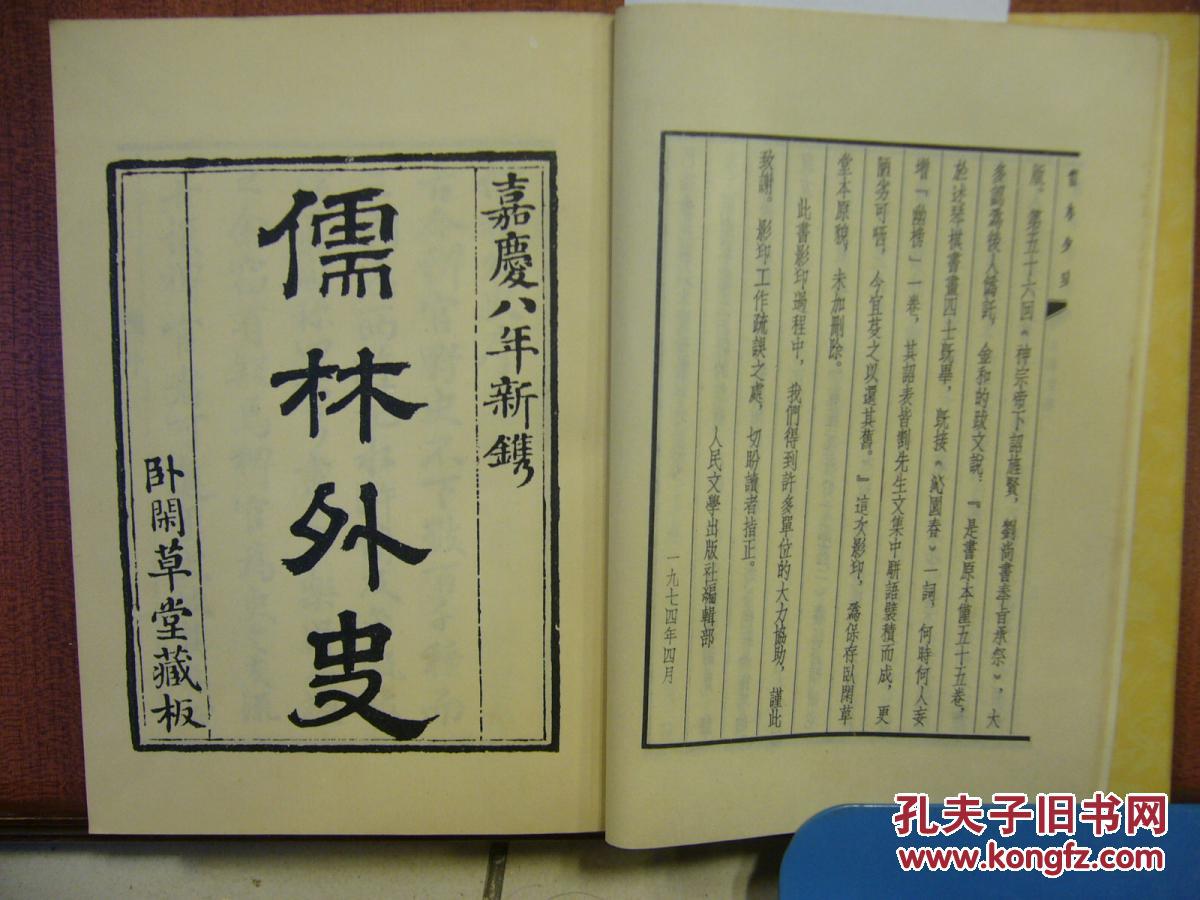 版。第五十六回《神宗帝下詔旌賢,劉尚書奉旨承祭》,大
多認爲後人僞託,金和的跋文說:『是書原本僅五十五卷,
於述琴棋書畫四士既畢,既接《沁園春》一詞,何時何人妄
增『幽榜』一卷,其詔表皆割先生文集中駢語襞積而成,更
陋劣可哂,今宜芟之以還其舊。』這次影印,爲保存卧閑草
堂本原貌,未加刪除。
此書影印過程中,我們得到許多單位的大力協助,謹此
致謝。影印工作疏誤之處,切盼讀者指正。
人民文學出版社編輯部
一九七四年四月
嘉慶八年新鐫
儒林外史
卧閑草堂藏板
孔夫子旧书网
www.kongfz.com